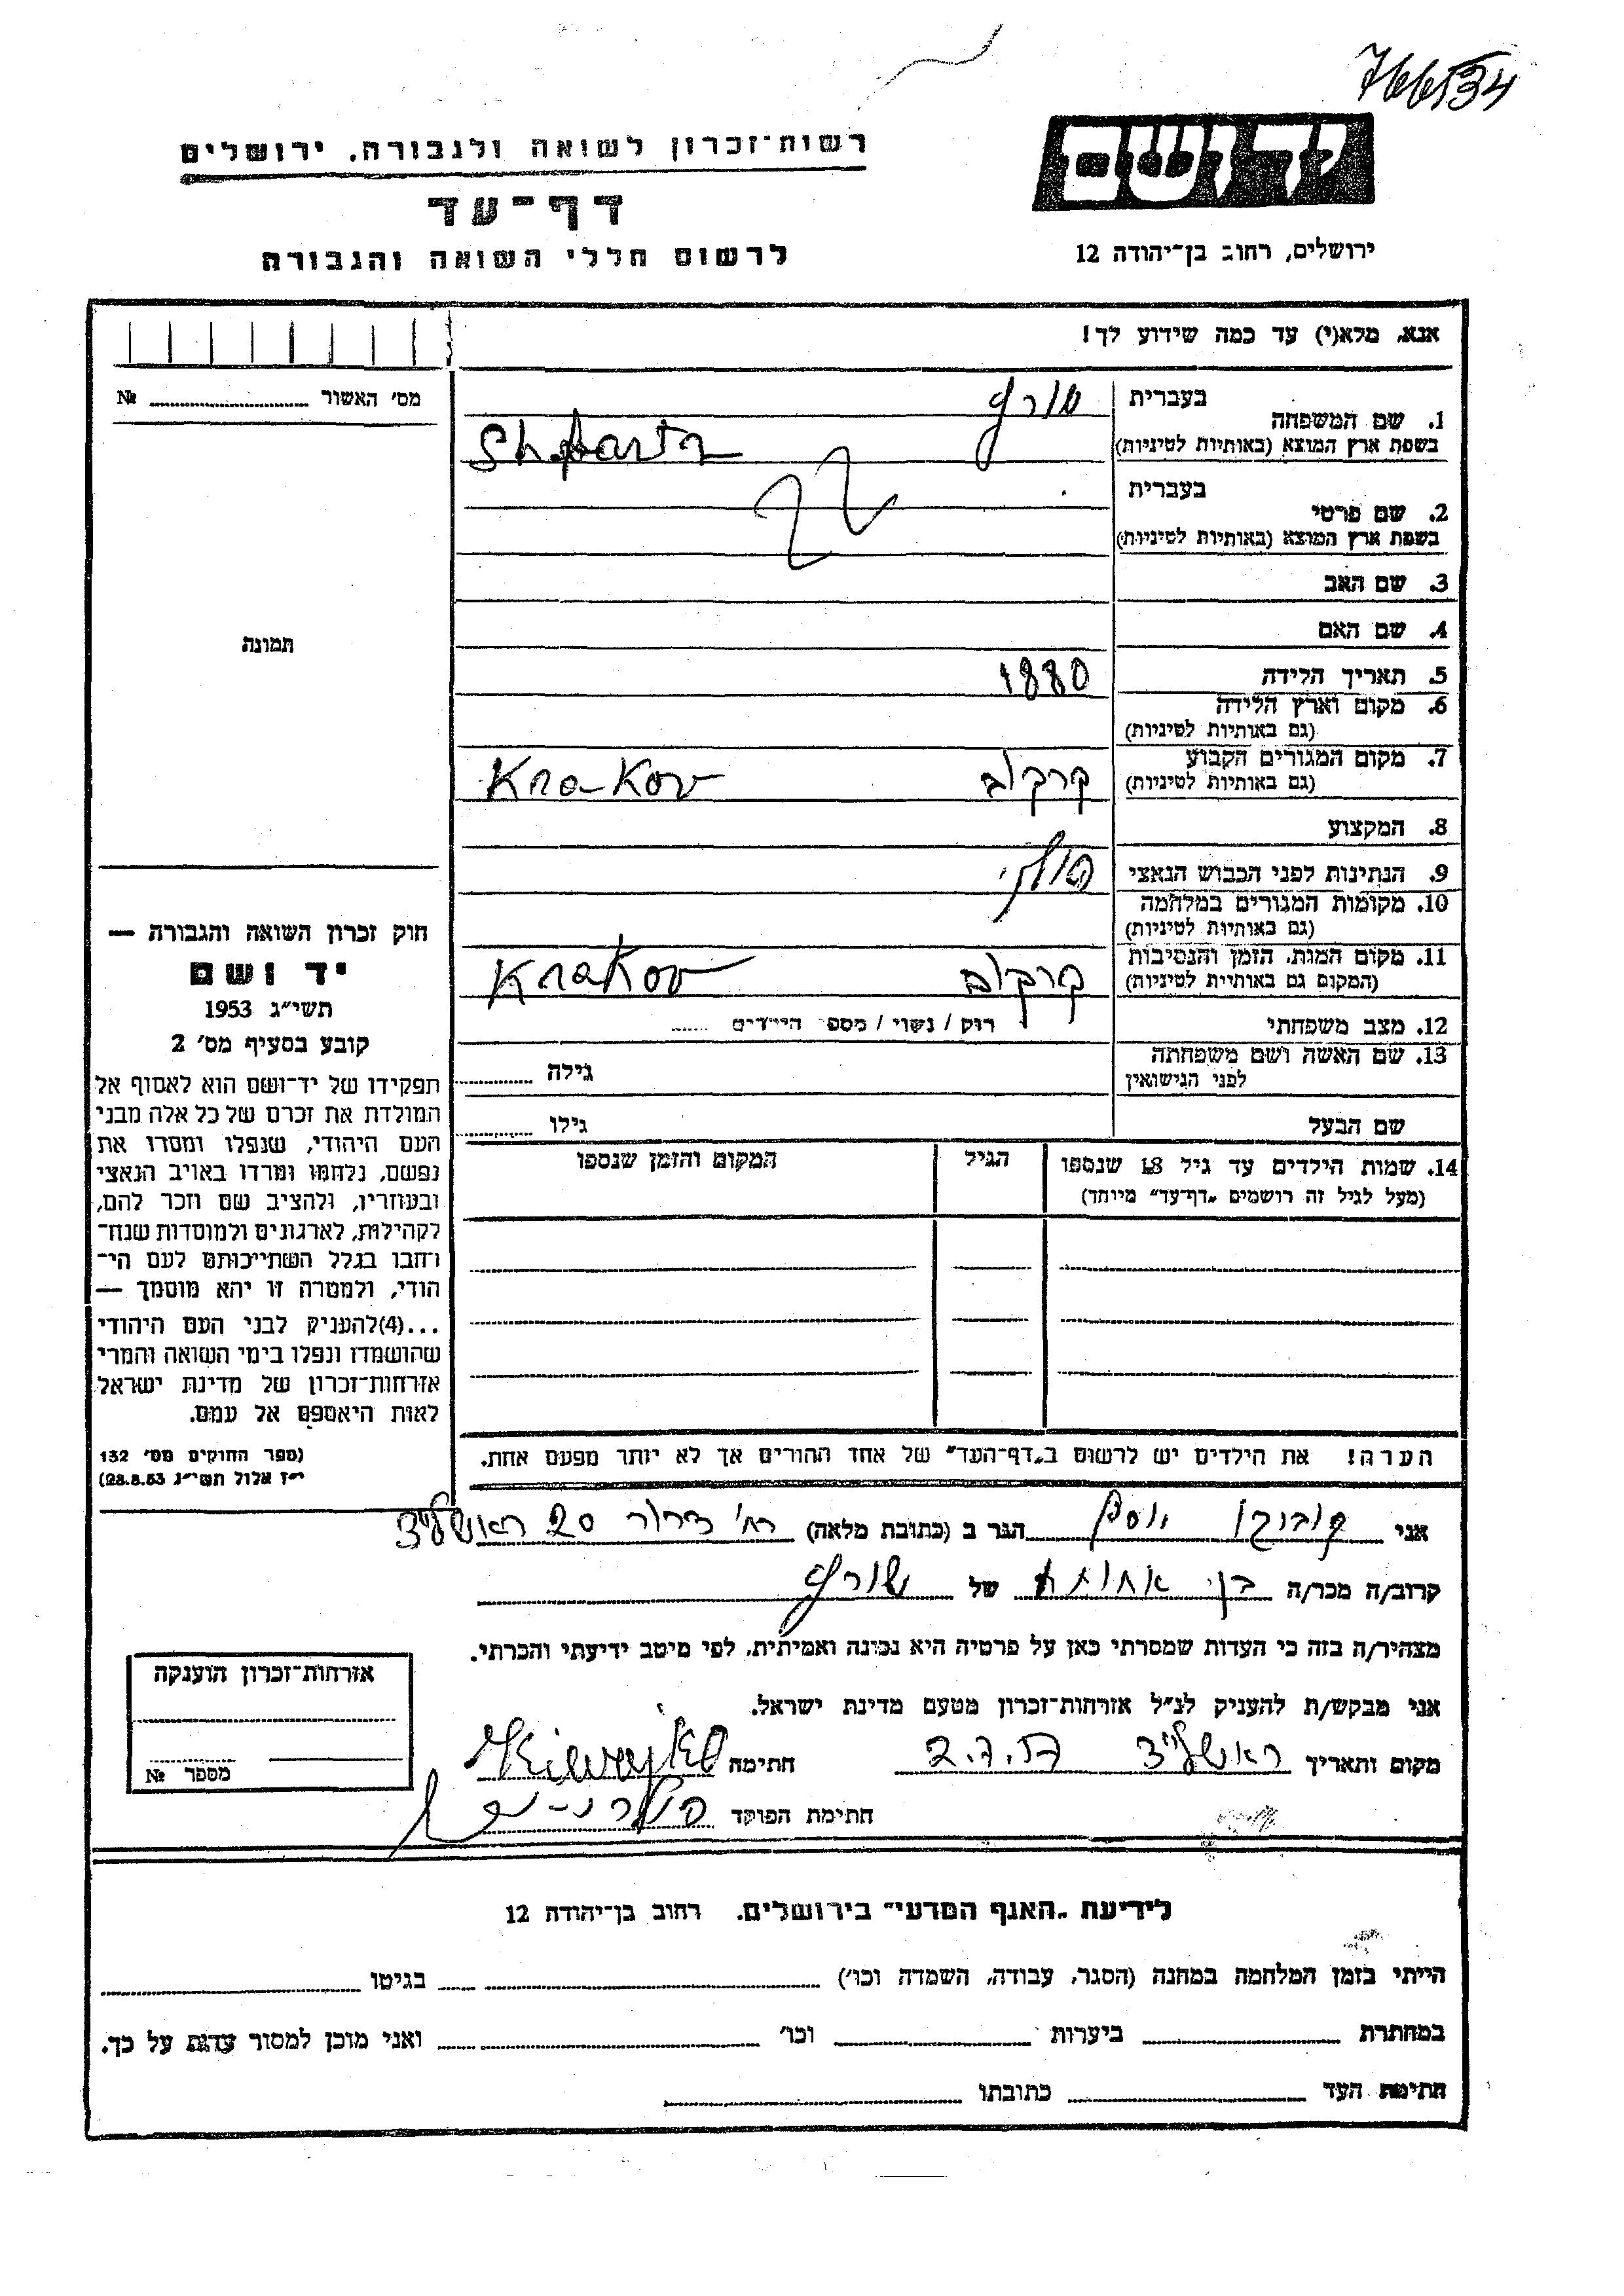 766534
יד ושם
רשות־זכרון לשואה ולגבורה. ירושלים
דף־עד
לרשום חללי השואה והגבורה
ירושלים, רחוב בן־יהודה 12
אנא. מלא(י) עד כמה שידוע לך!
מס׳ האשור № ........
1. שם המשפחה בעברית
בשפת ארץ המוצא (באותיות לטיניות)
2. שם פרטי בעברית
בשפת ארץ המוצא (באותיות לטיניות)
3. שם האב
4. שם האם
תמונה
5. תאריך הלידה 1880
6. מקום וארץ הלידה
(גם באותיות לטיניות)
7. מקום המגורים הקבוע
(גם באותיות לטיניות) קרקוב Krakov
8. המקצוע
9. הנתינות לפני הכבוש הנאצי
10. מקומות המגורים במלחמה
(גם באותיות לטיניות)
11. מקום המות, הזמן והנסיבות
(המקום גם באותיית לטיניות) קרקוב Krakov
12. מצב משפחתי רוק / נשוי / מספר הילדים ......
13. שם האשה ושם משפחתה
לפני הנישואין גילה ........
שם הבעל גילו ........
14. שמות הילדים עד גיל 18 שנספו הגיל המקום והזמן שנספו
(מעל לגיל זה רושמים „דף־עד״ מיוחד)
הערה! את הילדים יש לרשום ב„דף־העד״ של אחד ההורים אך לא יותר מפעם אחת.
חוק זכרון השואה והגבורה —
יד ושם
תשי״ג 1953
קובע בסעיף מס׳ 2
תפקידו של יד־ושם הוא לאסוף אל
המולדת את זכרם של כל אלה מבני
העם היהודי, שנפלו ומסרו את
נפשם, נלחמו ומרדו באויב הנאצי
ובעוזריו, ולהציב שם וזכר להם,
לקהילות, לארגונים ולמוסדות שנח־
רחבו בגלל השתייכותם לעם הי־
הודי, ולמטרה זו יהא מוסמך —
...(4)להעניק לבני העם היהודי
שהושמדו ונפלו בימי השואה והמרי
אזרחות־זכרון של מדינת ישראל
לאות היאספם אל עמם.
(ספר החוקים מס׳ 132
י״ז אלול תשי״ג 28.8.53)
אני יוסף הגר ב (כתובת מלאה) רח׳ דרור 20 ראשל״צ
קרוב/ה מכר/ה בן אחות של שורץ
מצהיר/ה בזה כי העדות שמסרתי כאן על פרטיה היא נכונה ואמיתית, לפי מיטב ידיעתי והכרתי.
אני מבקש/ת להעניק לנ״ל אזרחות־זכרון מטעם מדינת ישראל.
מקום ותאריך ראשל״צ 2.7.57 חתימה
חתימת הפוקד
אזרחות־זכרון הוענקה
מספר №
לידיעת „האגף המדעי״ בירושלים. רחוב בן־יהודה 12
הייתי בזמן המלחמה במחנה (הסגר, עבודה, השמדה וכו׳) ........ בגיטו ........
במחתרת ........ ביערות ........ וכו׳ ........ ואני מוכן למסור עדות על כך.
חתימת העד ........ כתובתו ........